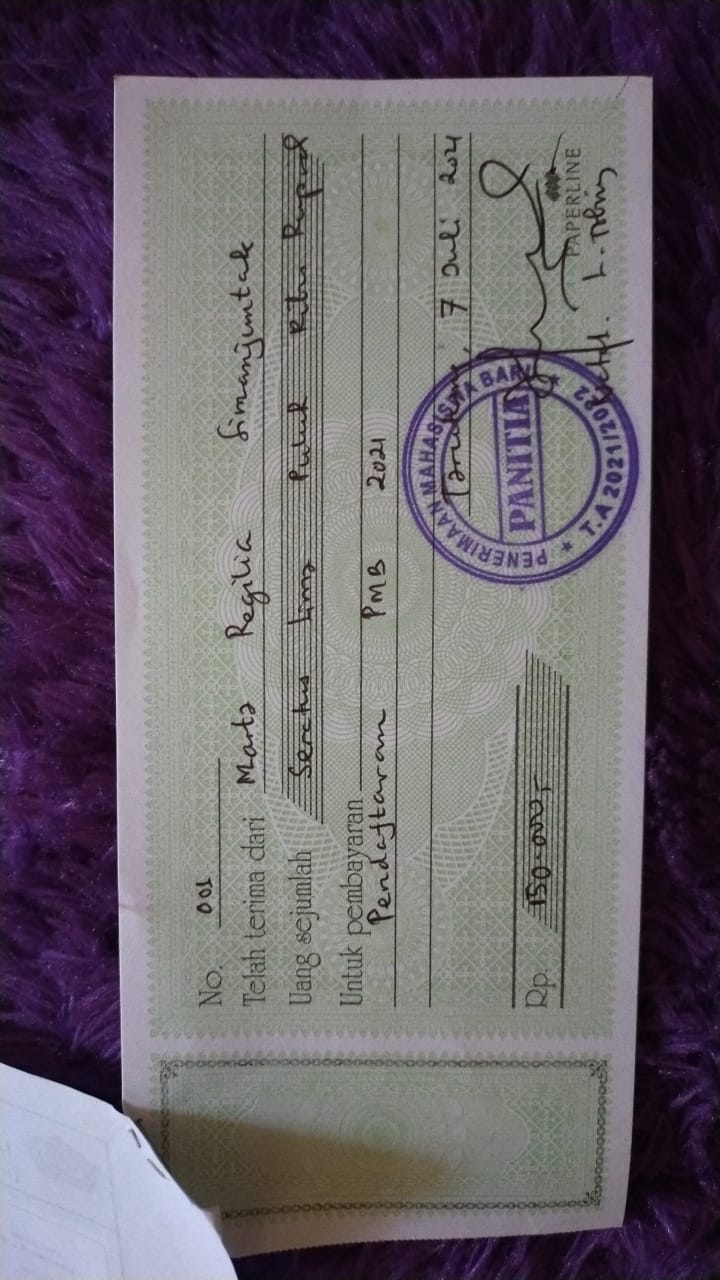 No. 001
Telah terima dari Marta Regilia Simanjuntak
Uang sejumlah Seratus Lima Puluh Ribu Rupiah
Untuk pembayaran
Pendaftaran PMB 2021
Tarutung, 7 Juli 2021
PENERIMAAN MAHASISWA BARU
PANITIA
T.A 2021/2022
Rp. 150.000,-
PAPERLINE
L. Tobing